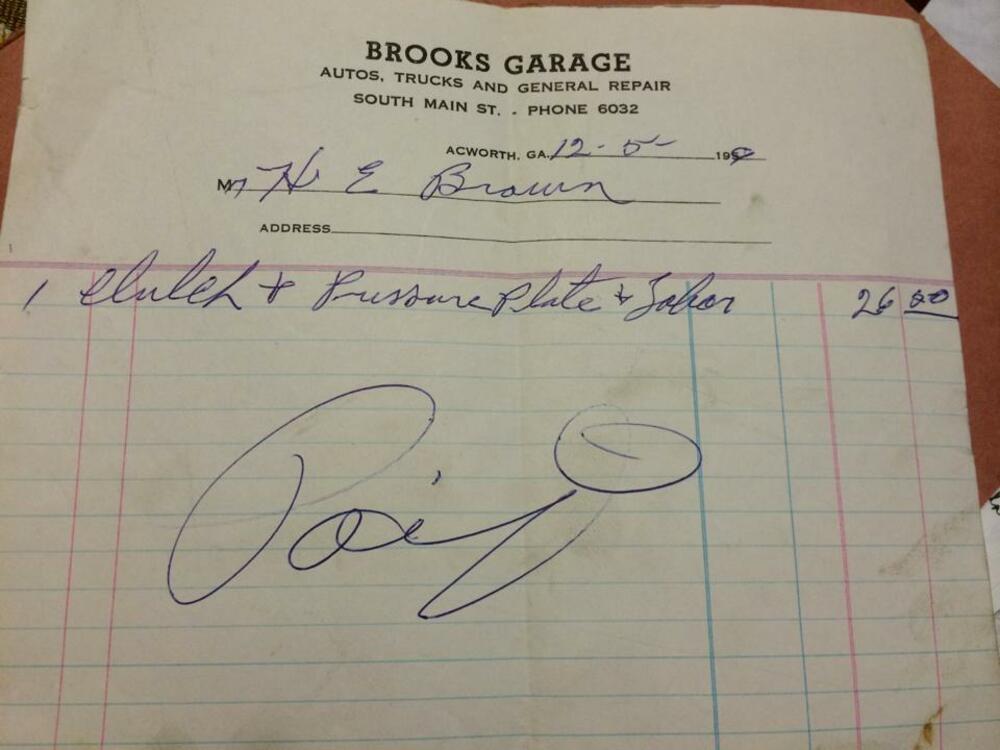 BROOKS GARAGE
AUTOS, TRUCKS AND GENERAL REPAIR
SOUTH MAIN ST. - PHONE 6032
ACWORTH, GA. 12-5- 19
M H E Brown
ADDRESS
1 Clutch + Pressure Plate & Labor 26 00
Paid